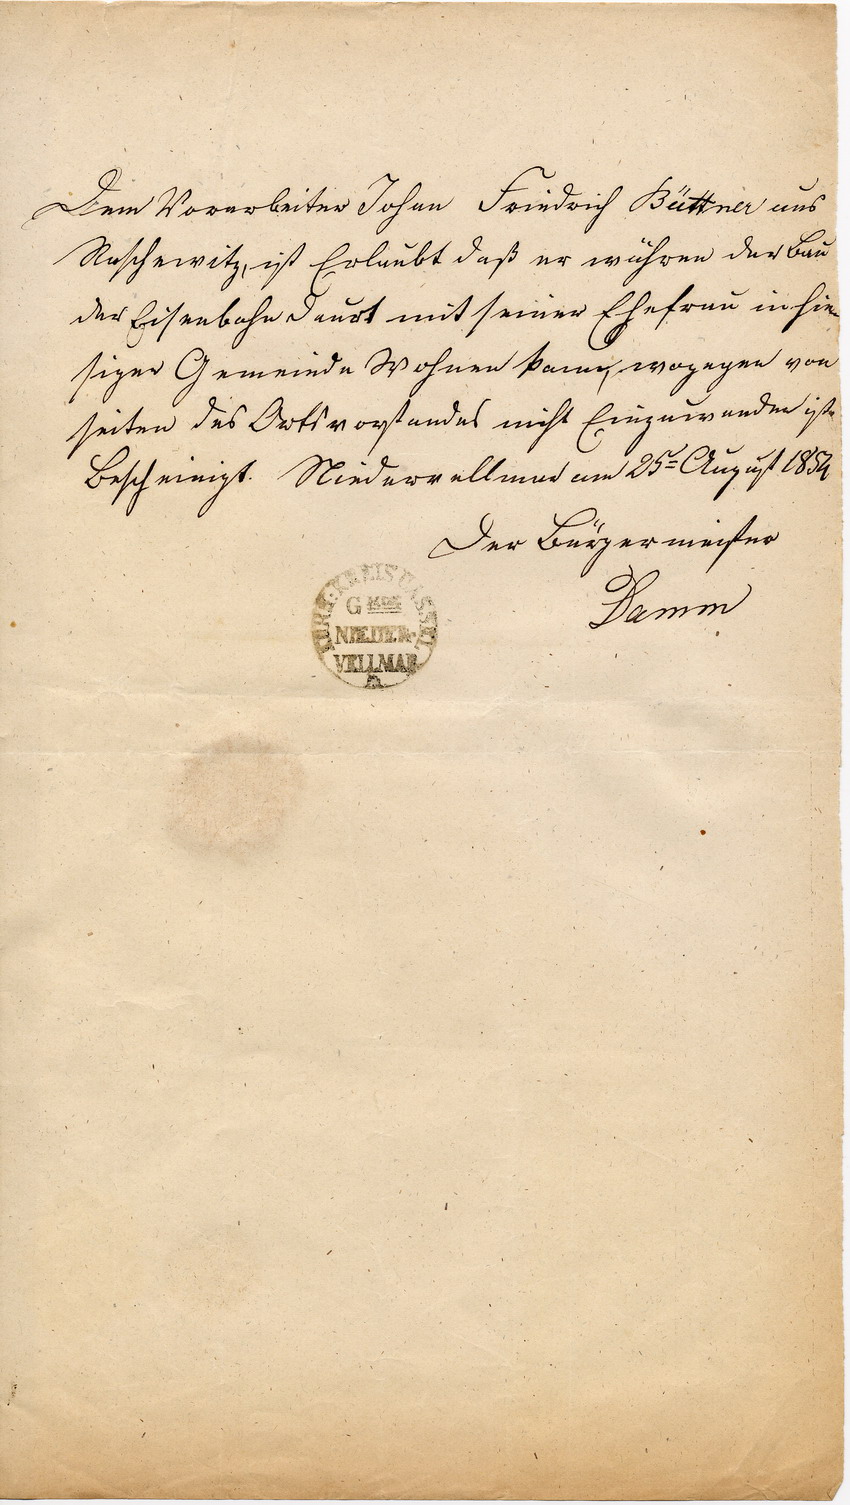 Dem Vorarbeiter Johan Friedrich Büttner aus
Raschewitz, ist Erlaubt daß er währen der Bau
der Eisenbahn Daurt mit seiner Ehefrau in hie-
siger Gemeinde Wohnen kann, wogegen von
seiten des Ortsvorstandes nicht Einzuwenden ist.
Bescheinigt. Niedervellmar am 25t August 1851
Der Bürgermeister
Damm
KURH: KREIS CASSEL
G MDE
NIEDER-
VELLMAR